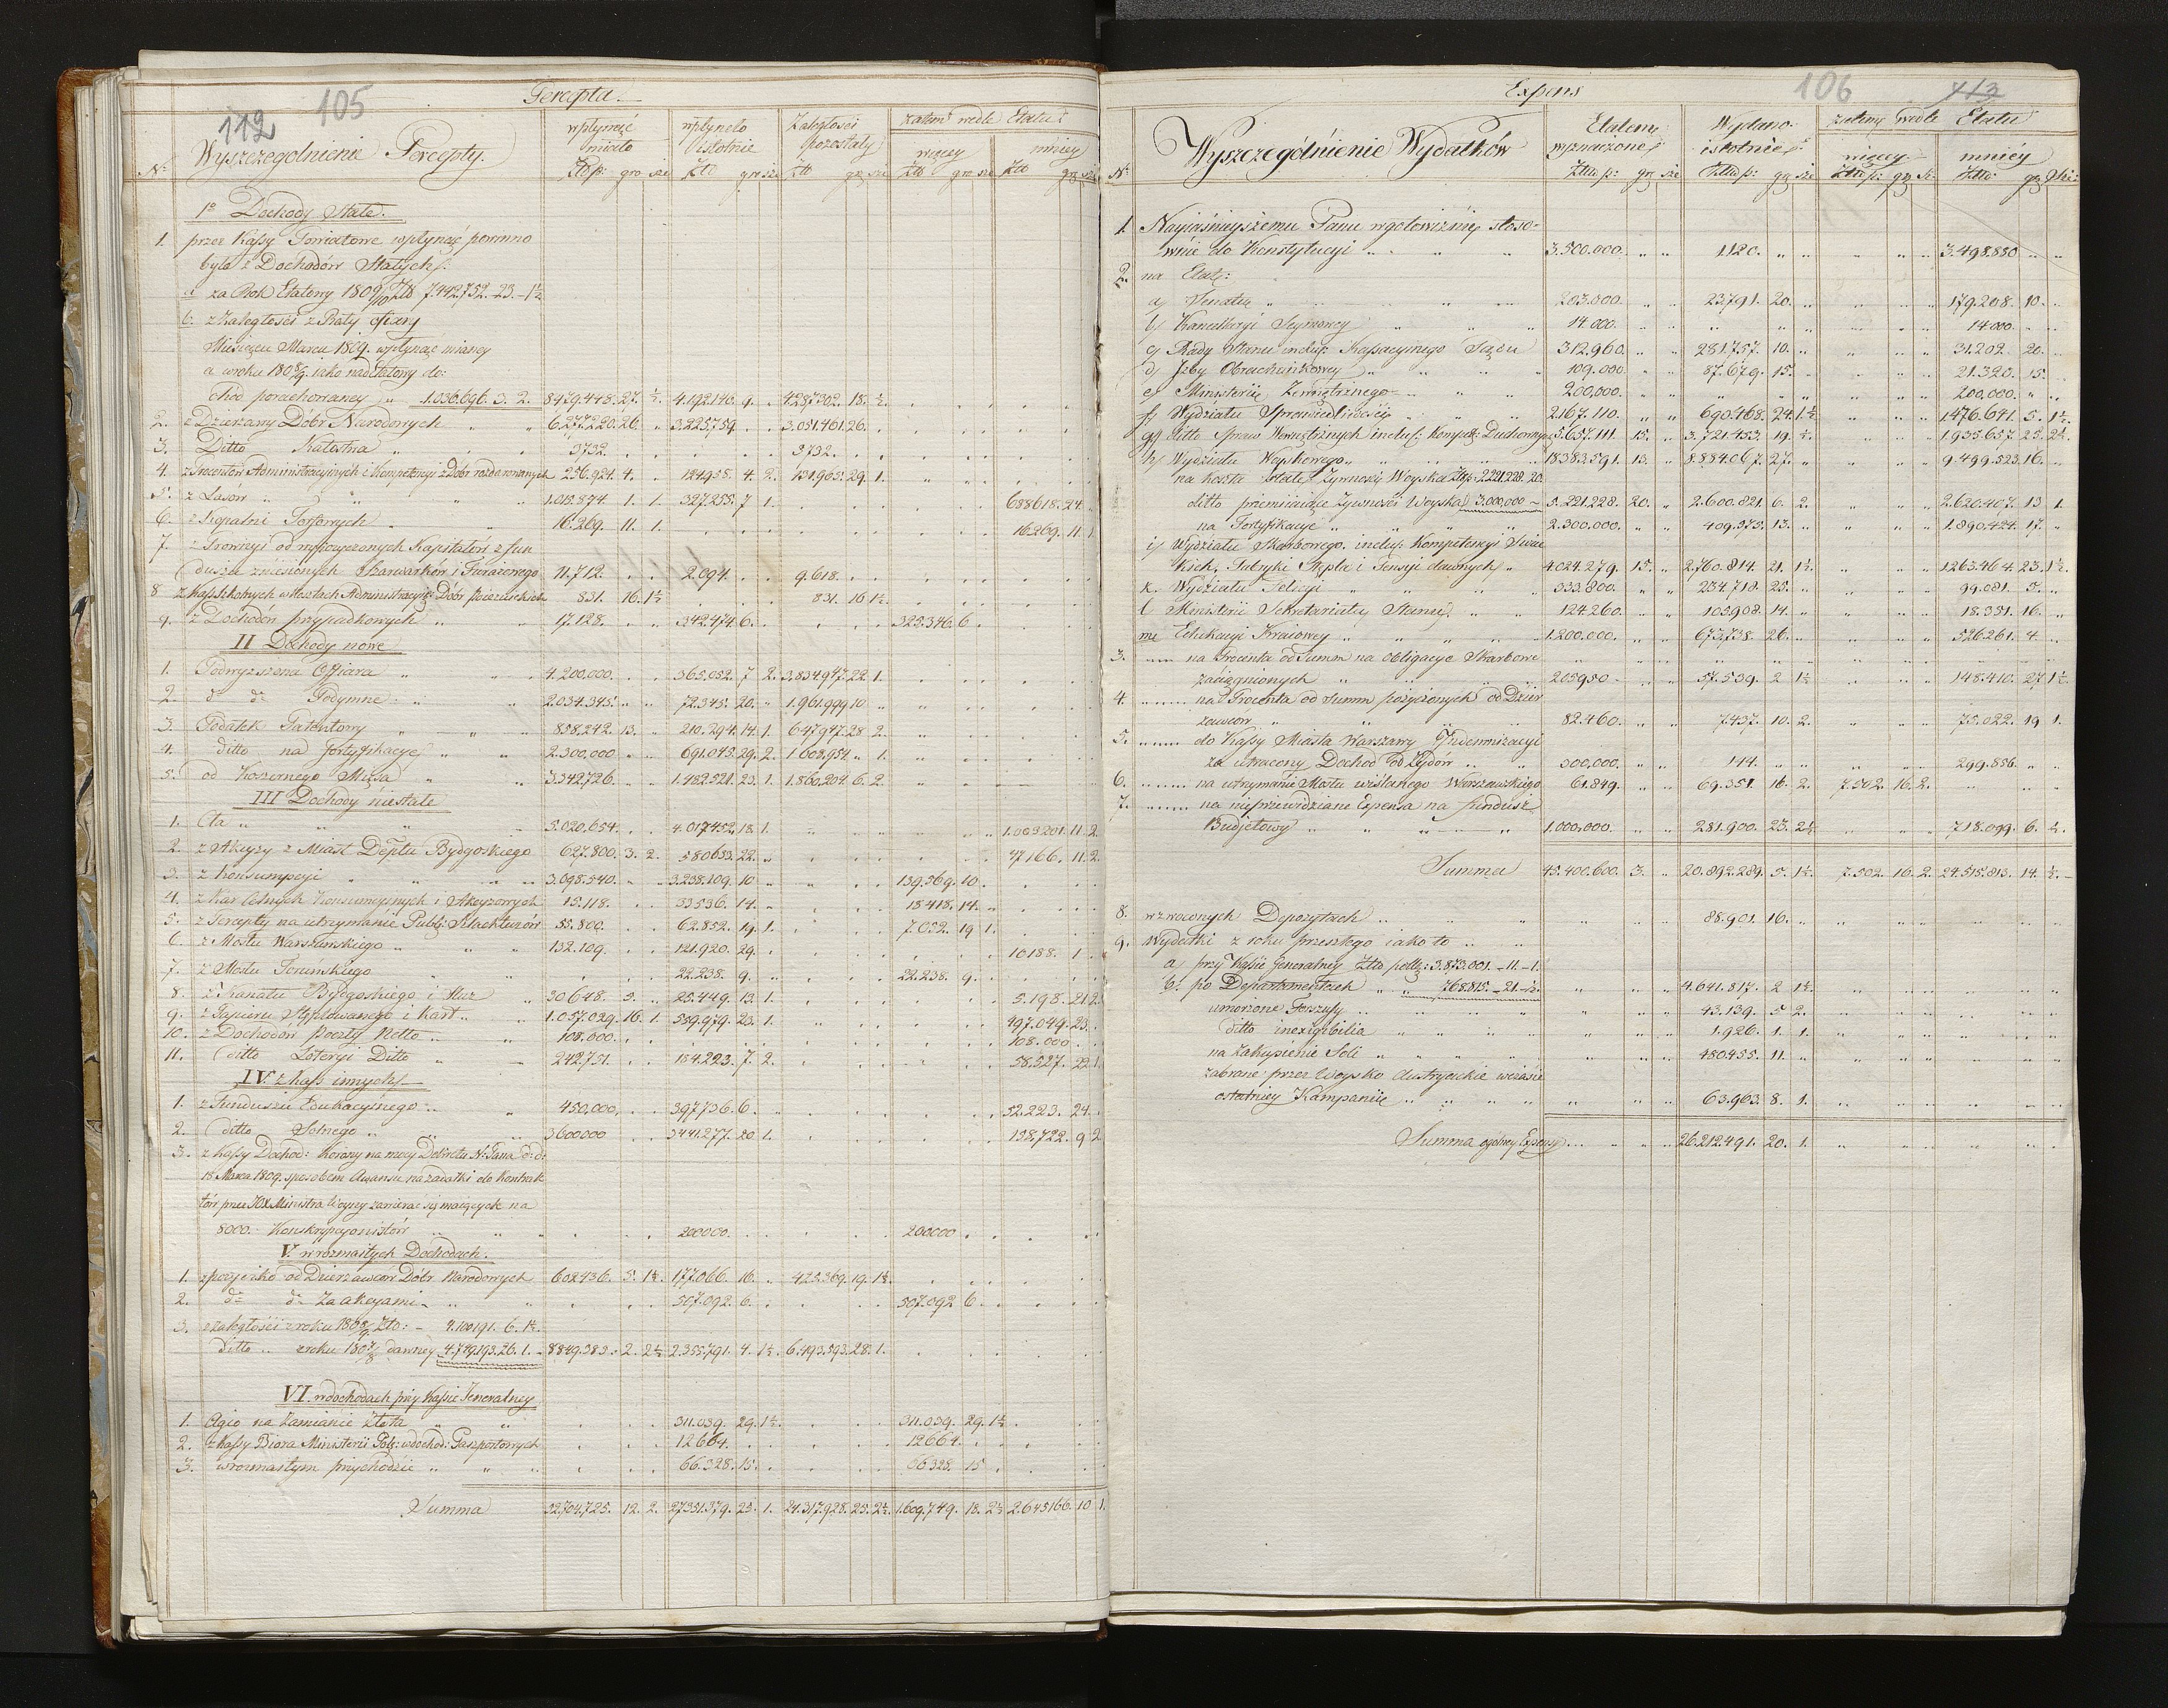 112 105
Percepta.
Nº Wyszczegolnienie Percepty.
wpłynąć miało Złłp: gro sze
wpłyneło istotnie Złło gro sze
Zaległości pozostały Złło gr sze
zatem wedle Etatu
więcey Złło gro sze
mniey Złło gr sze
1º Dochody Stałe.
1. przez Kassy Powiatowe wpłynąć powinno
było z Dochodów Stałych:
a za Rok Etatowy 1809/10 Złło 7.442.752. 23. 1½
b. z Zaległości z Raty Ofiary
Miesiącu Marcu 1809. wpłynąć mianey
a w roku 1808/9. iako nad Etatowy do:
chód porachowaney „ 1.036.696. 3. 2. 8479.448. 27. ½. 4.192.146. 9. . 4287302. 18. ½.
2. z Dzierżawy Dóbr Narodowych 6.277.220. 26. 3.225.759. . . 3.051.461. 26.
3. Ditto Katastra 3732. . . 3732.
4. z Procentów Administracyinych i Kompetencyi z Dóbr rozdarowanych 256.924. 4. 124958. 4. 2. 131.965. 29. 1.
5. z Lasów 1.015.874. 1. 1. 327255. 7 1. 688618. 24.
6. z Kopalni Torfowych 16.269. 11. 1. 16.269. 11. 1
7. z Prowizyi od wypożyczonych Kapitałów z fun
duszu zniesionych Szarwarków i Furażowego 11.712. 2.094. 9.618.
8 z Kass Szkolnych w Kosztach Administracyi Dóbr Poiezuickich 831. 16. 1½ 831. 16 1½.
9. z Dochodów przypadkowych 17.128. 342.474. 6. 325.346. 6
II Dochody nowe
1. Podwyższona Offiara 4.200.000. 365.052. 7 2. 3.834.947. 22 1.
2. dº dº Podymne 2.034.345. 72.345. 20. 1.961.999 10
3. Podatek Patentowy 858.242. 13. 210.294. 14. 1. 647947. 28 2.
4. ditto na fortyfikacye 2.300.000 691.045. 29. 2. 1.608.954. „ 1.
5. od Koszernego Mięsa 3.342.726. 1.482.521. 23. 1. 1.860.204 6. 2
III Dochody niestałe
1. Cła 5.020.654. 4.017.452. 18. 1. 1.003.201. 11. 2.
2. z Akcyzy z Miast Deptu Bydgoskiego 627.800. 3. 2. 580633. 22. 47.166. 11. 2.
3. z Konsumpcyi 3.098.540. 3.238.109. 10 139.569. 10.
4. z Kar Celnych Konsumcyinych i Akcyzowych 15.118. 33536. 14. 18418. 14.
5. z Percepty na utrzymanie Publ: Traktów 55.800. 62.852. 19. 1. 7.052. 19 1.
6. z Mostu Warszawskiego 132.109. 121.920. 29. 10188. 1
7. z Mostu Toruńskiego 22.238. 9. 22.238. 9.
8. z Kanału Bydgoskiego i Sluz 30648. 5. 25.449. 13. 1. 5.198. 21 2.
9. z Papieru Stęplowanego i Kart 1.057.029. 16. 1. 559.979. 23. 1. 497.049. 23.
10. z Dochodów poczty Netto 108.000. 108.000
11. ditto Loteryi Ditto 242.751. 184.223. 7. 2. 58.527. 22 1.
IV. z Kass innych
1. z Funduszu Edukacyinego 450.000. 397736. 6. 52.223. 24.
2. ditto Solnego 3600000 3441.277. 20 1. 158.722. 9 2
3. z Kassy Dochod: Korony na mocy Dekretu N: Pana d: d:
18 Marca 1809. sposobem Awansu na zadatki do Kontrak
tów przez JW. Ministra Woyny zawierać się maiących na
8000. Konskrypcyonistów 200000. 200000
V. w rozmaitych Dochodach.
1. z pożyczki od Dzierżawców Dóbr Narodowych 602436. 5. 1½. 177.066. 16. 425.369. 19. 1½.
2. dº dº Za akcyami 507.092. 6. 507.092 6
3. z zaległości z roku 1808/9 Złło: 4.100191. 6. 1½.
ditto z roku 1807/8 dawney 4.749.193. 26. 1. 8849.385. 2. 2½ 2.355.791. 4. 1½. 6.493.593. 28. 1.
VI. w dochodach przy Kassie Jeneralney
1. Agio na Zamianie złota 311.039. 29. 1½. 311.039. 29. 1½.
2. z Kassy Biora Ministerii Pol: w dochod: Paszportowych 12664. 12664.
3. w rozmaitym przychodzie 66.328. 15. 66328. 15
Summa 52.704.725. 12. 2. 27.351.379. 25. 1. 24.317.928. 25. 2½. 1.609.749. 18. 2½ 2.645166. 10 1.
Expens 106 113
Nº Wyszczególnienie Wydatków
Etatem wyznaczone Złłp: gr sze
Wydano istotnie Złłp: gr sze
zatem wedle Etatu
więcey Złłp: gr sz:
mniéy Złło: gr Sze:
1. Nayiaśnieyszemu Panu w gotowiźnie stoso-
wnie do Konstytucyi 3.500.000. 1120. 3.498.880
2. na Etat:
a) Senatu 203.000. 23791. 20. 179.208. 10.
b) Kancellaryi Seymowey 14.000. 14.000.
c) Rady Stanu inclus: Kassacyinego Sądu 312.960. 281.757. 10. 31.202. 20.
d) Izby Obrachunkowey 109.000. 87.679. 15. 21.320. 15.
e) Ministerii Zewnętrznego 200,000. 200,000.
f) Wydziału Sprawiedliwości 2.167.110. 690.468. 24. 1½ 1476.641. 5. 1½.
g) ditto Spraw Wewnętrznych inclus: Kompet: Duchownych 5.657.111. 15. 3.721.453. 19. ½. 1.935.657. 25. 2½.
h) Wydziału Woyskowego 18383591. 13. 8.884.067. 27. 9.499.523. 16.
na koszta stałe Żywności Woyska Złłp: 2.221.228. 20.
ditto przemijające Żywności Woyska 3.000,000 5.221.228. 20. 2.600.821. 6. 2. 2.620.407. 13 1.
na Fortyfikacye 2.300.000. 409.575. 13. 1.890.424. 17.
i) Wydziału Skarbowego, inclus: Kompetencyi Świec
Kich, Fabryki Stępla i Pensyi dawnych 4024.279. 15. 2,760.814. 21. 1½. 1263.464. 23. 1½.
k. Wydziału Policyi 333.800. 234.718. 25. 99.081. 5.
l Ministerii Sekretariatu Stanu 124.260. 105908. 14. 18.351. 16.
m Edukacyi Kraiowey 1.200.000. 673,738. 26. 526261. 4.
3. na Procenta od Summ na Obligacye Skarbowe
zaciągnionych 205950 57.539. 2 1½ 148.410. 27 1½.
4. na Procenta od Summ pożyczonych od Dzier
żawców 82.460. 7437. 10. 2. 75.022. 19 1.
5. do Kassy Miasta Warszawy Indemnizacyi
za utracony Dochod od Żydów 300,000. 144. 299.856.
6. na utrzymanie Mostu wiślanego Warszawskiego 61.849. 69.351. 16. 2. 7.502. 16. 2.
7. na nieprzewidziane Expensa na fundusz
Budjetowy 1.000.000. 281.900. 23. 2½ 718.099. 6. ½.
Summa 45.400.600. 3. 20.892.289. 5. 1½ 7.502. 16. 2. 24.515.813. 14. ½.
8. w zwroconych Depozytach 88.901. 16.
9. Wydatki z roku przeszłego iako to
a) przy Kassie Generalney Złło polls: 3.873.001. 11. 1.
b. po Departamentach 768.815. 21. ½. 4.641.817. 2 1½.
umorzone Forszusy 43.139. 5 2.
ditto inexigibilia 1.926. 1. 1.
na Zakupienie Soli 480.455. 11.
zabrane przez Woysko Austryackie w czasie
ostatniey Kampanii 63.963. 8. 1.
Summa ogólney Expensy 26.212.491. 20. 1.